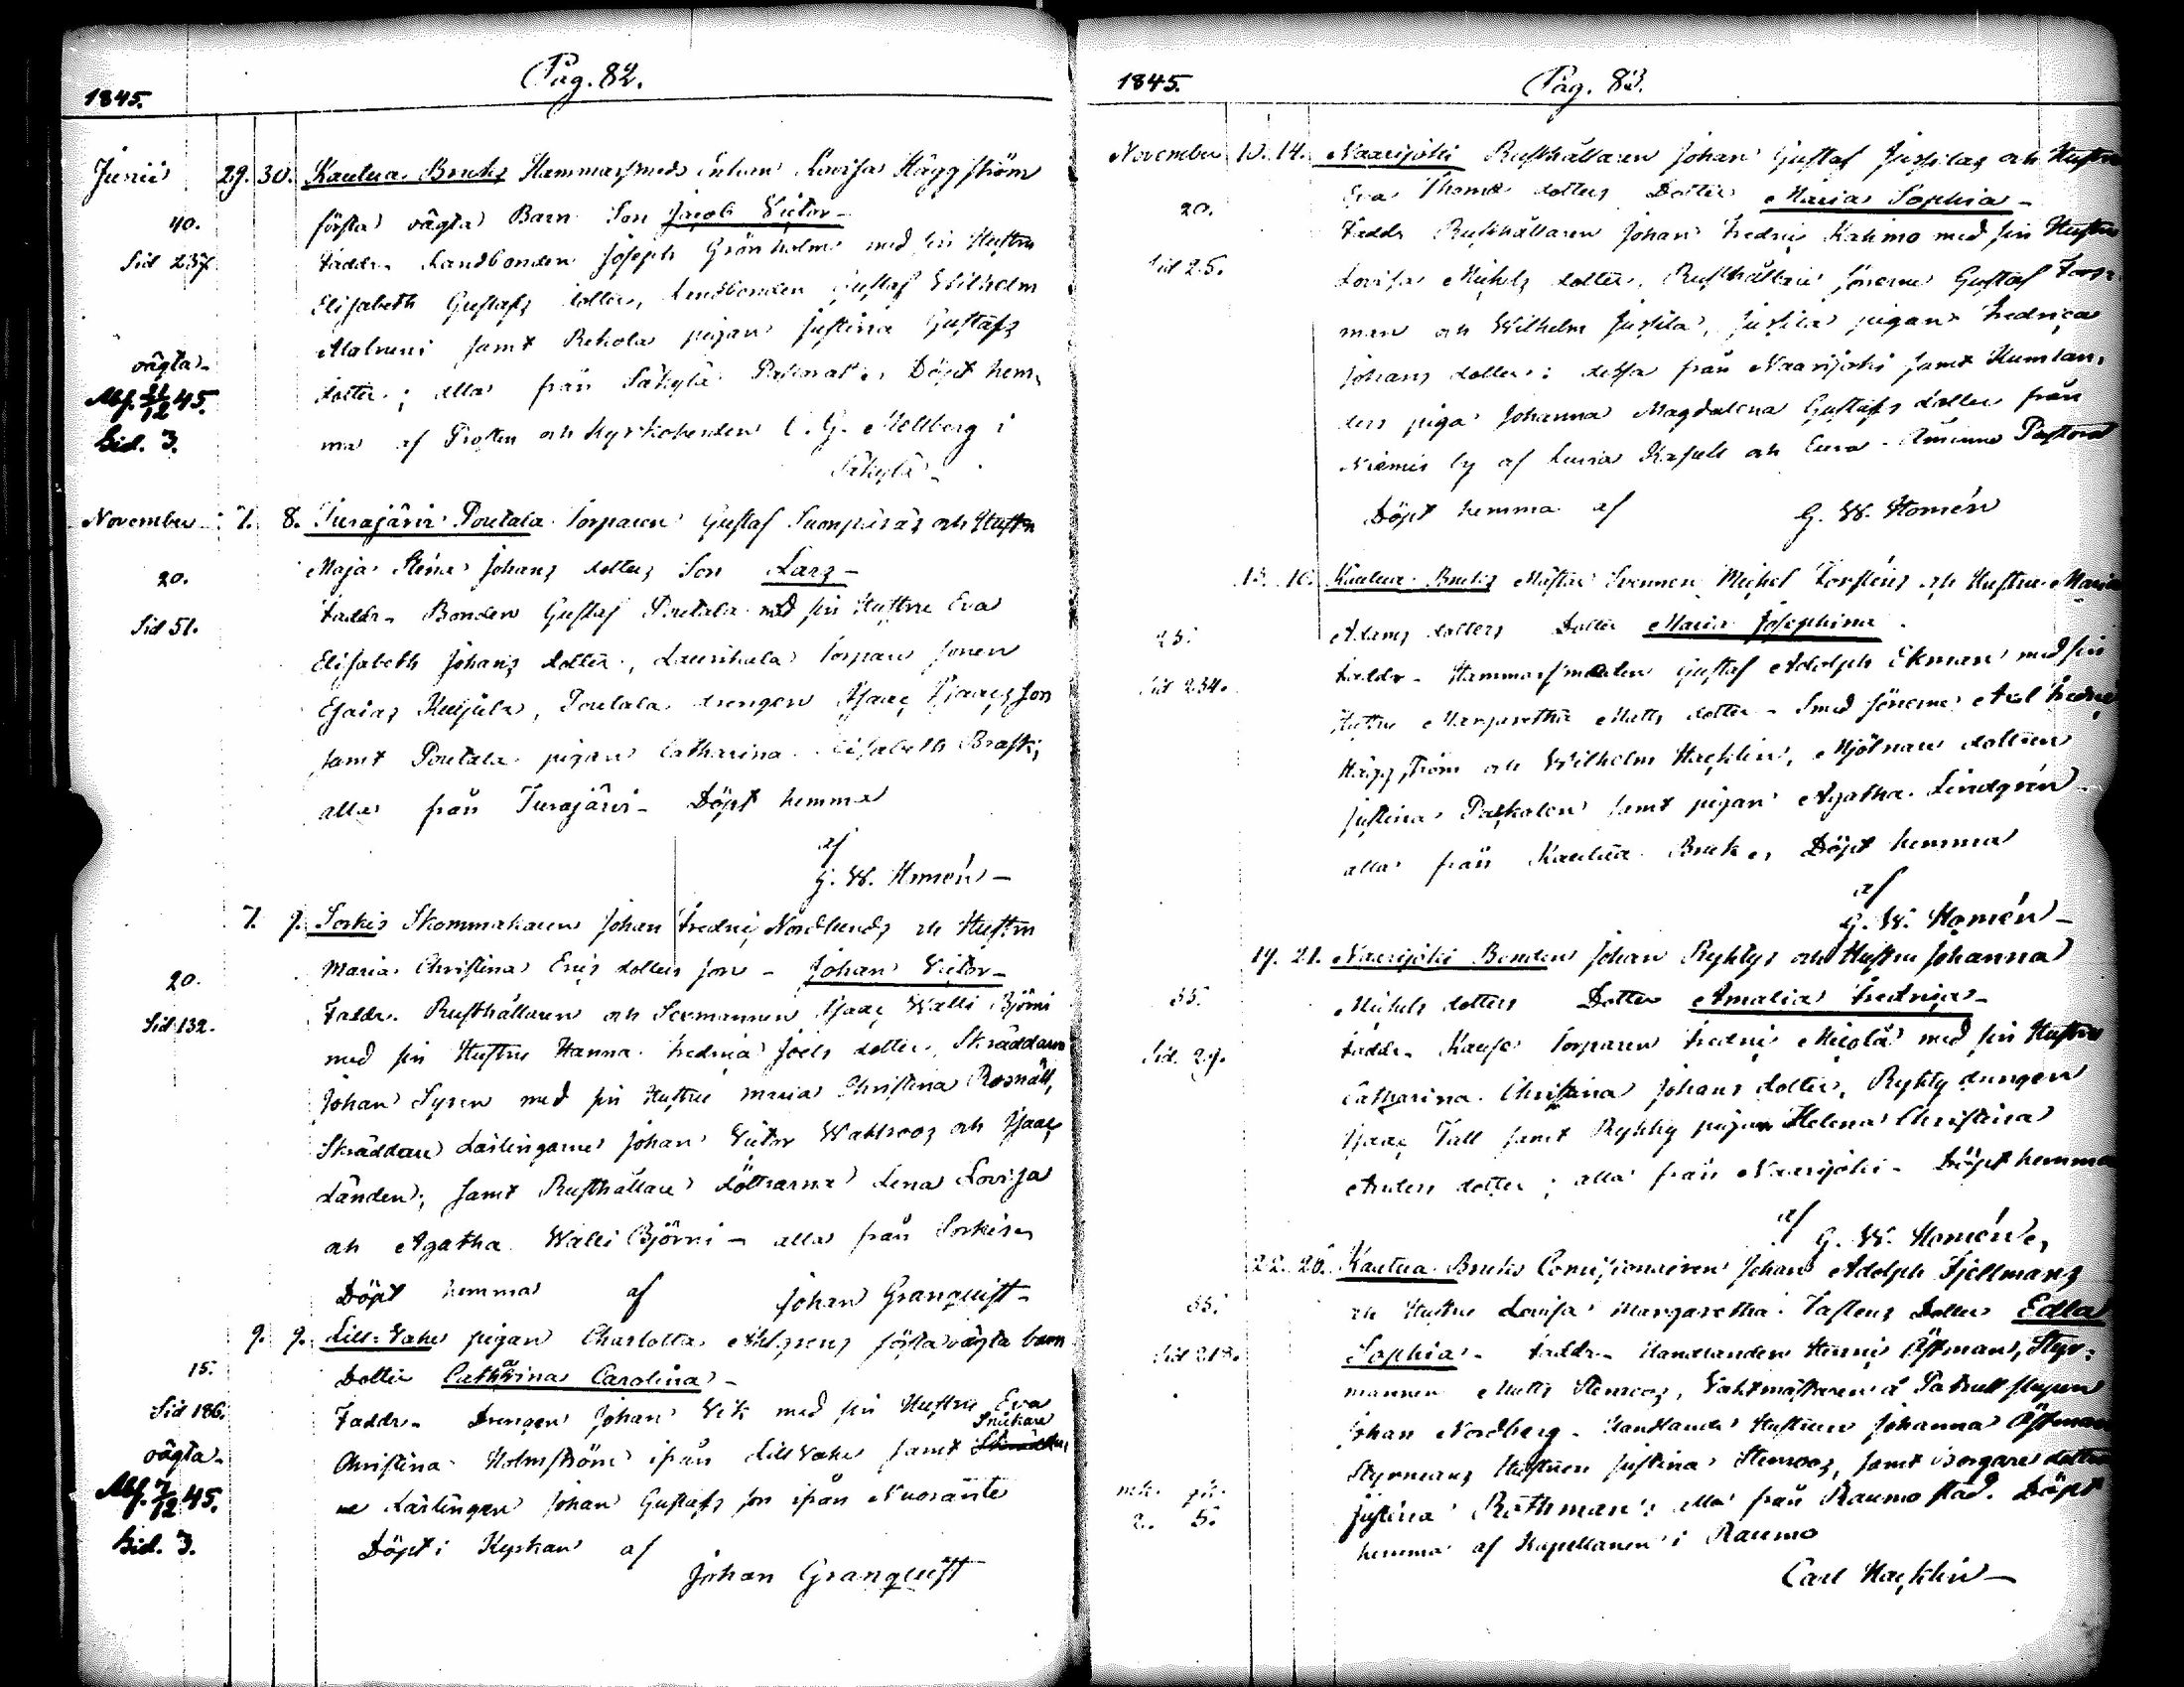 1845.
Pag. 82.
Junii 29. 30. Kautua Bruks Hammarsmeds Enkan Lovisa Häggström
40. första oägta Barn Son Jacob Victor-
Sid 237. Faddr. Landbonden Joseph Grönholm med sin Hustru
Elisabeth Gustafs dotter, Landbonden Gustaf Wilhelm
Malmeni samt Rekola pigan Justina Gustafs
oägta. dotter; alla från Säkylä Pastorat., Döpt hem-
Abs. 21/12 45. ma af Prosten och Kyrkoherden C. G. Mellberg i
bid. 3. Säkylä-
November 7. 8. Turajärvi Poutala Torparen Gustaf Suonpääs och Hustru
20. Maja Stina Johans dotters Son Lars-
Sid 51. Faddr. Bonden Gustaf Poutala med sin Hustru Eva
Elisabeth Johans dotter, Laurikkala Torpare sonen
Esaias, Poutala drengen Isaac Isaacs son
samt Poutala pigan Catharina Elisabeth Brask;
alla från Turajärvi- Döpt hemma
af
G. W. Homén-
7. 9. Sorkis Skommakaren Johan Fredric Nordlunds och Hustru
20. Maria Christina Erics dotters son - Johan Victor-
Sid 132. Faddr. Rusthållaren och Sexmannen Isaac Walli Björni
med sin Hustru Hanna Fredrica Joels dotter, Skräddaren
Johan Syren med sin Hustru Maria Christina Rosnäll,
Skräddare Lärlingarne Johan Victor Wahlroos och Isaac
Länden; samt Rusthållare döttrarna Lena Lovisa
och Agatha Walli Björni - alla från Sorkis,
Döpt hemma af Johan Granquist-
9. 9. Lill-Vahe pigan Charlotta Ahlgrens första oägta barn
15. Dotter Catharina Carolina-
Sid 186. Faddr. Drengen Johan Vik med sin Hustru Eva
oägta. Christina Holmström ifrån Lill Vahe samt Snickare
Abs. 7/12 45. Lärlingen Johan Gustafs son ifrån Nuoränte
bid. 3. Döpt i Kyrkan af
Johan Granquist
1845.
Pag. 83.
November 10. 14. Naarijoki Rusthållaren Johan Gustaf Jussilas och Hustru
20. Eva Thomæ dotters Dotter Maria Sophia-
Sid 25. Faddr Rusthållaren Johan Fredric Kahmo med sin Hustru
Lovisa Michels dotter, Rusthållare sönerne Gustaf Fors-
man och Wilhelm Jussila, Jussila pigan Fredrica
Johans dotter: dessa från Naarijoki samt
piga Johanna Magdalena Gustafs dotter från
Niemis by af Luvia Kapell och Eura Åminne Pastorat
Döpt hemma af G. W. Homén
15. 16. Kautua Bruks Mästare Svennen Michel Forsténs och Hustru Maria
25. Adams dotters Dotter Maria Josephina.
Sid 234. Faddr- Hammarsmeden Gustaf Adolph Ekman med sin
Hustru Margaretha Matts dotter- Smed sönerne Axel Fredric
Häggström och Wilhelm Hacklin, Mjölnare dottren
Justina Paskalen samt pigan Agatha Lindgrén-
alla från Kautua Bruk., Döpt hemma
af
G. W. Homén-
19. 21. Naarijoki Bonden Johan Ryhtys och Hustru Johanna
35. Michels dotters Dotter Amalia Fredrica-
Sid. 29. Faddr. Torparen Fredric Micola med sin Hustru
Catharina Christina Johans dotter, Ryhty drengen
Isaac Tall samt Ryhty pigan Helena Christina
Anders dotter; alla från Naarijoki- Döpt hemma
af
G. W. Homén.,
22. 26. Kautua Bruks Comissionairen Johan Adolph Fjellmans
35. och Hustru Lovisa Margaretha Fastens Dotter Edla
Sid 218. Sophia- Faddr- Handlanden Henric Österman, Styr-
mannen Matts Stenroos, Vaktmästaren å
Johan Nordberg- Handlande Hustrun Johanna Österman
Styrmans Hustrun Justina Stenroos, samt borgare dottren
2. 5. Justina Röthman: alla från Raumo stad. Döpt
hemma af Kapellanen i Raumo
Carl Hacklin-